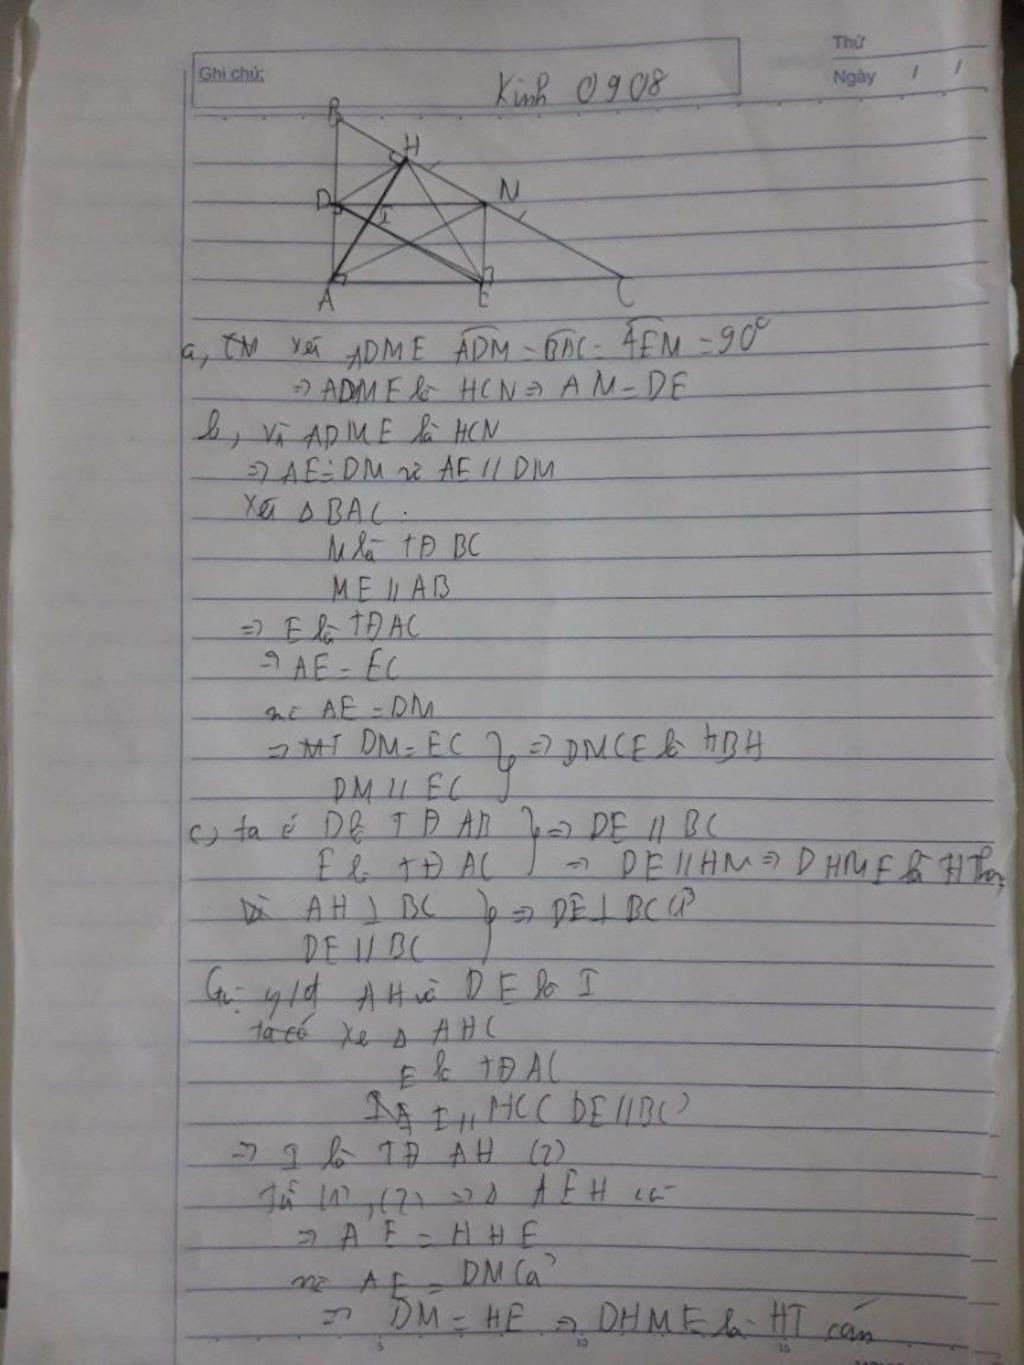 Thứ
Ghi chú:
Kinh 0908
Ngày / /
B
H
D
N
I
A
E
C
a, CM xét ADME ADM = BAC = AEM = 90°
⇒ ADME là HCN ⇒ AM = DE
b, vì ADME là HCN
⇒ AE = DM và AE // DM
Xét Δ BAC :
M là TĐ BC
ME // AB
⇒ E là TĐ AC
⇒ AE = EC
mà AE = DM
⇒ DM = EC } ⇒ DMCE là HBH
DM // EC
c, ta có D là TĐ AB } ⇒ DE // BC
E là TĐ AC ⇒ DE // HM ⇒ DHME là H Thang
Vì AH ⊥ BC } ⇒ DE ⊥
DE // BC
Gọi g/đ AH và DE là I
ta có xe Δ AHC
E là TĐ AC
I // HC ( DE // BC )
⇒ I là TĐ AH (2)
Từ (1), (2) ⇒ Δ AEH cân
⇒ AE = HHE
mà AE = DM (a)
⇒ DM = HE ⇒ DHME là HT cân
5 10 15